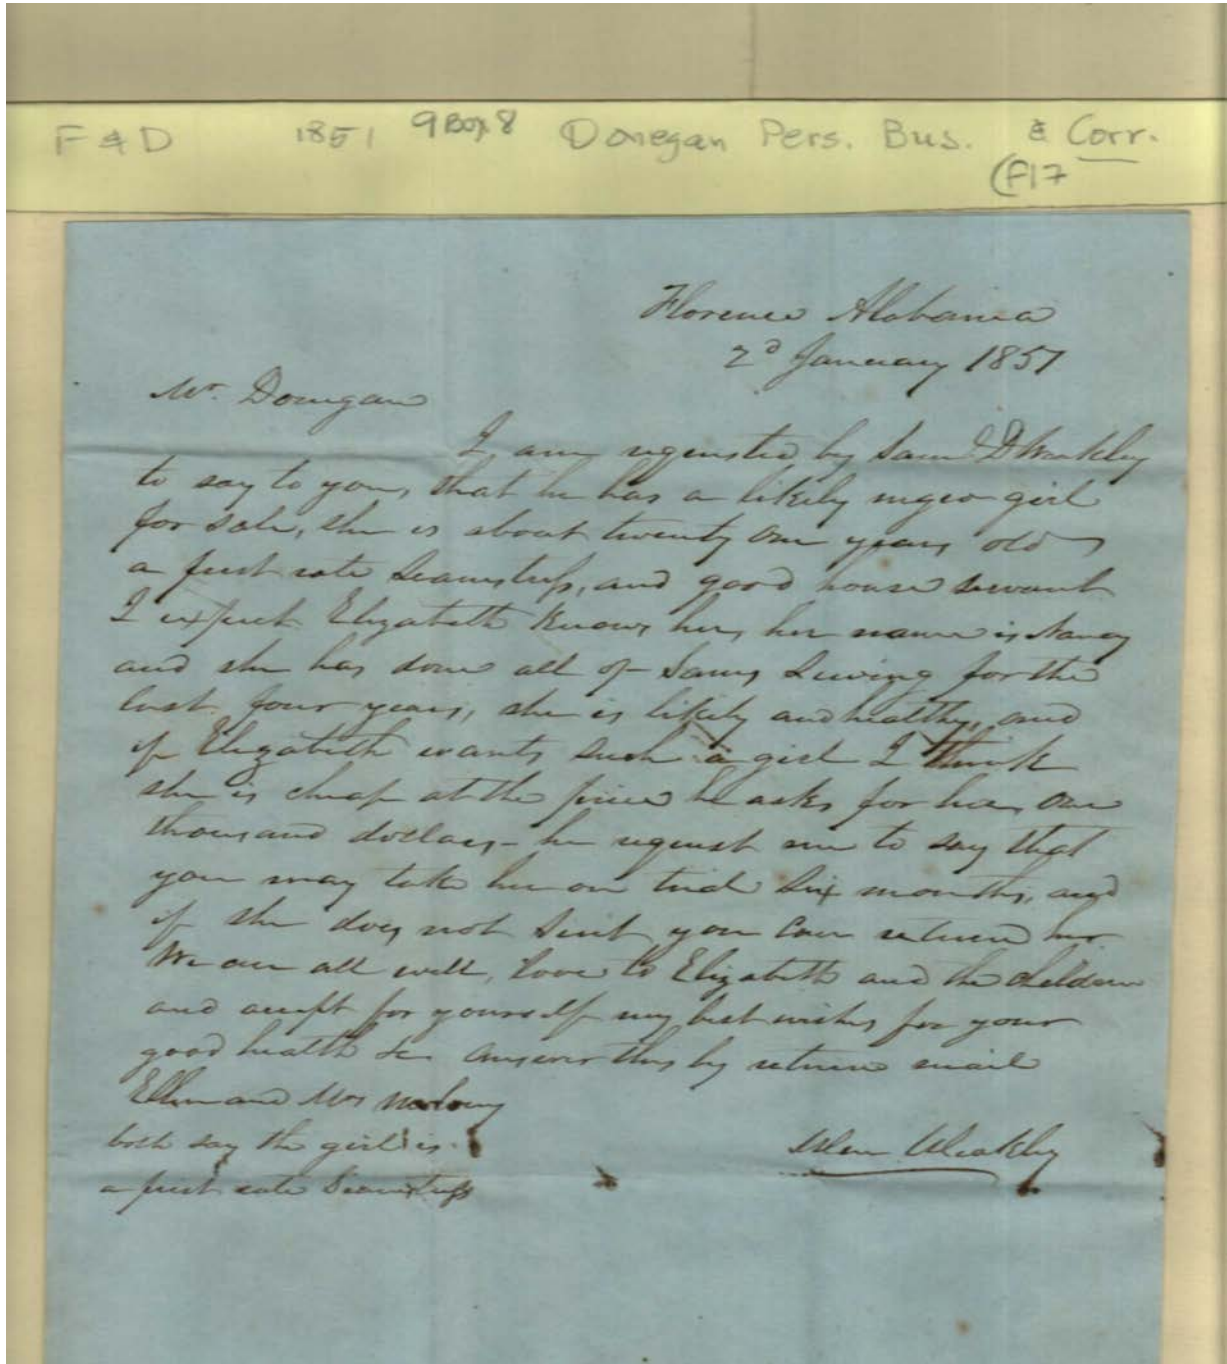 F & D 1851 9 Box 8 Donegan Pers. Bus. & Corr.
(F17
Florence Alabama
2d January 1851
Mr. Donegan
I am requested by Saml D Weakley
to say to you, that he has a likely negro girl
for sale, she is about twenty one years old
a first rate Seamstress, and good house servant
I expect Elizabeth knows her, her name is Nancy
and she has done all of Sams Sewing for the
last four years, she is likely and healthy, and
if Elizabeth wants such a girl I think
she is cheap at the price he asks for her, One
thousand dollars - he request me to say that
you may take her on trial Six months, and
if she does not Suit you Can return her.
We are all well, love to Elizabeth and the children
and accept for yourself my best wishes for your
good health &c Answer this by return mail
Ellen and Mrs
both say the girl is
a first rate Seamstress
Weakley